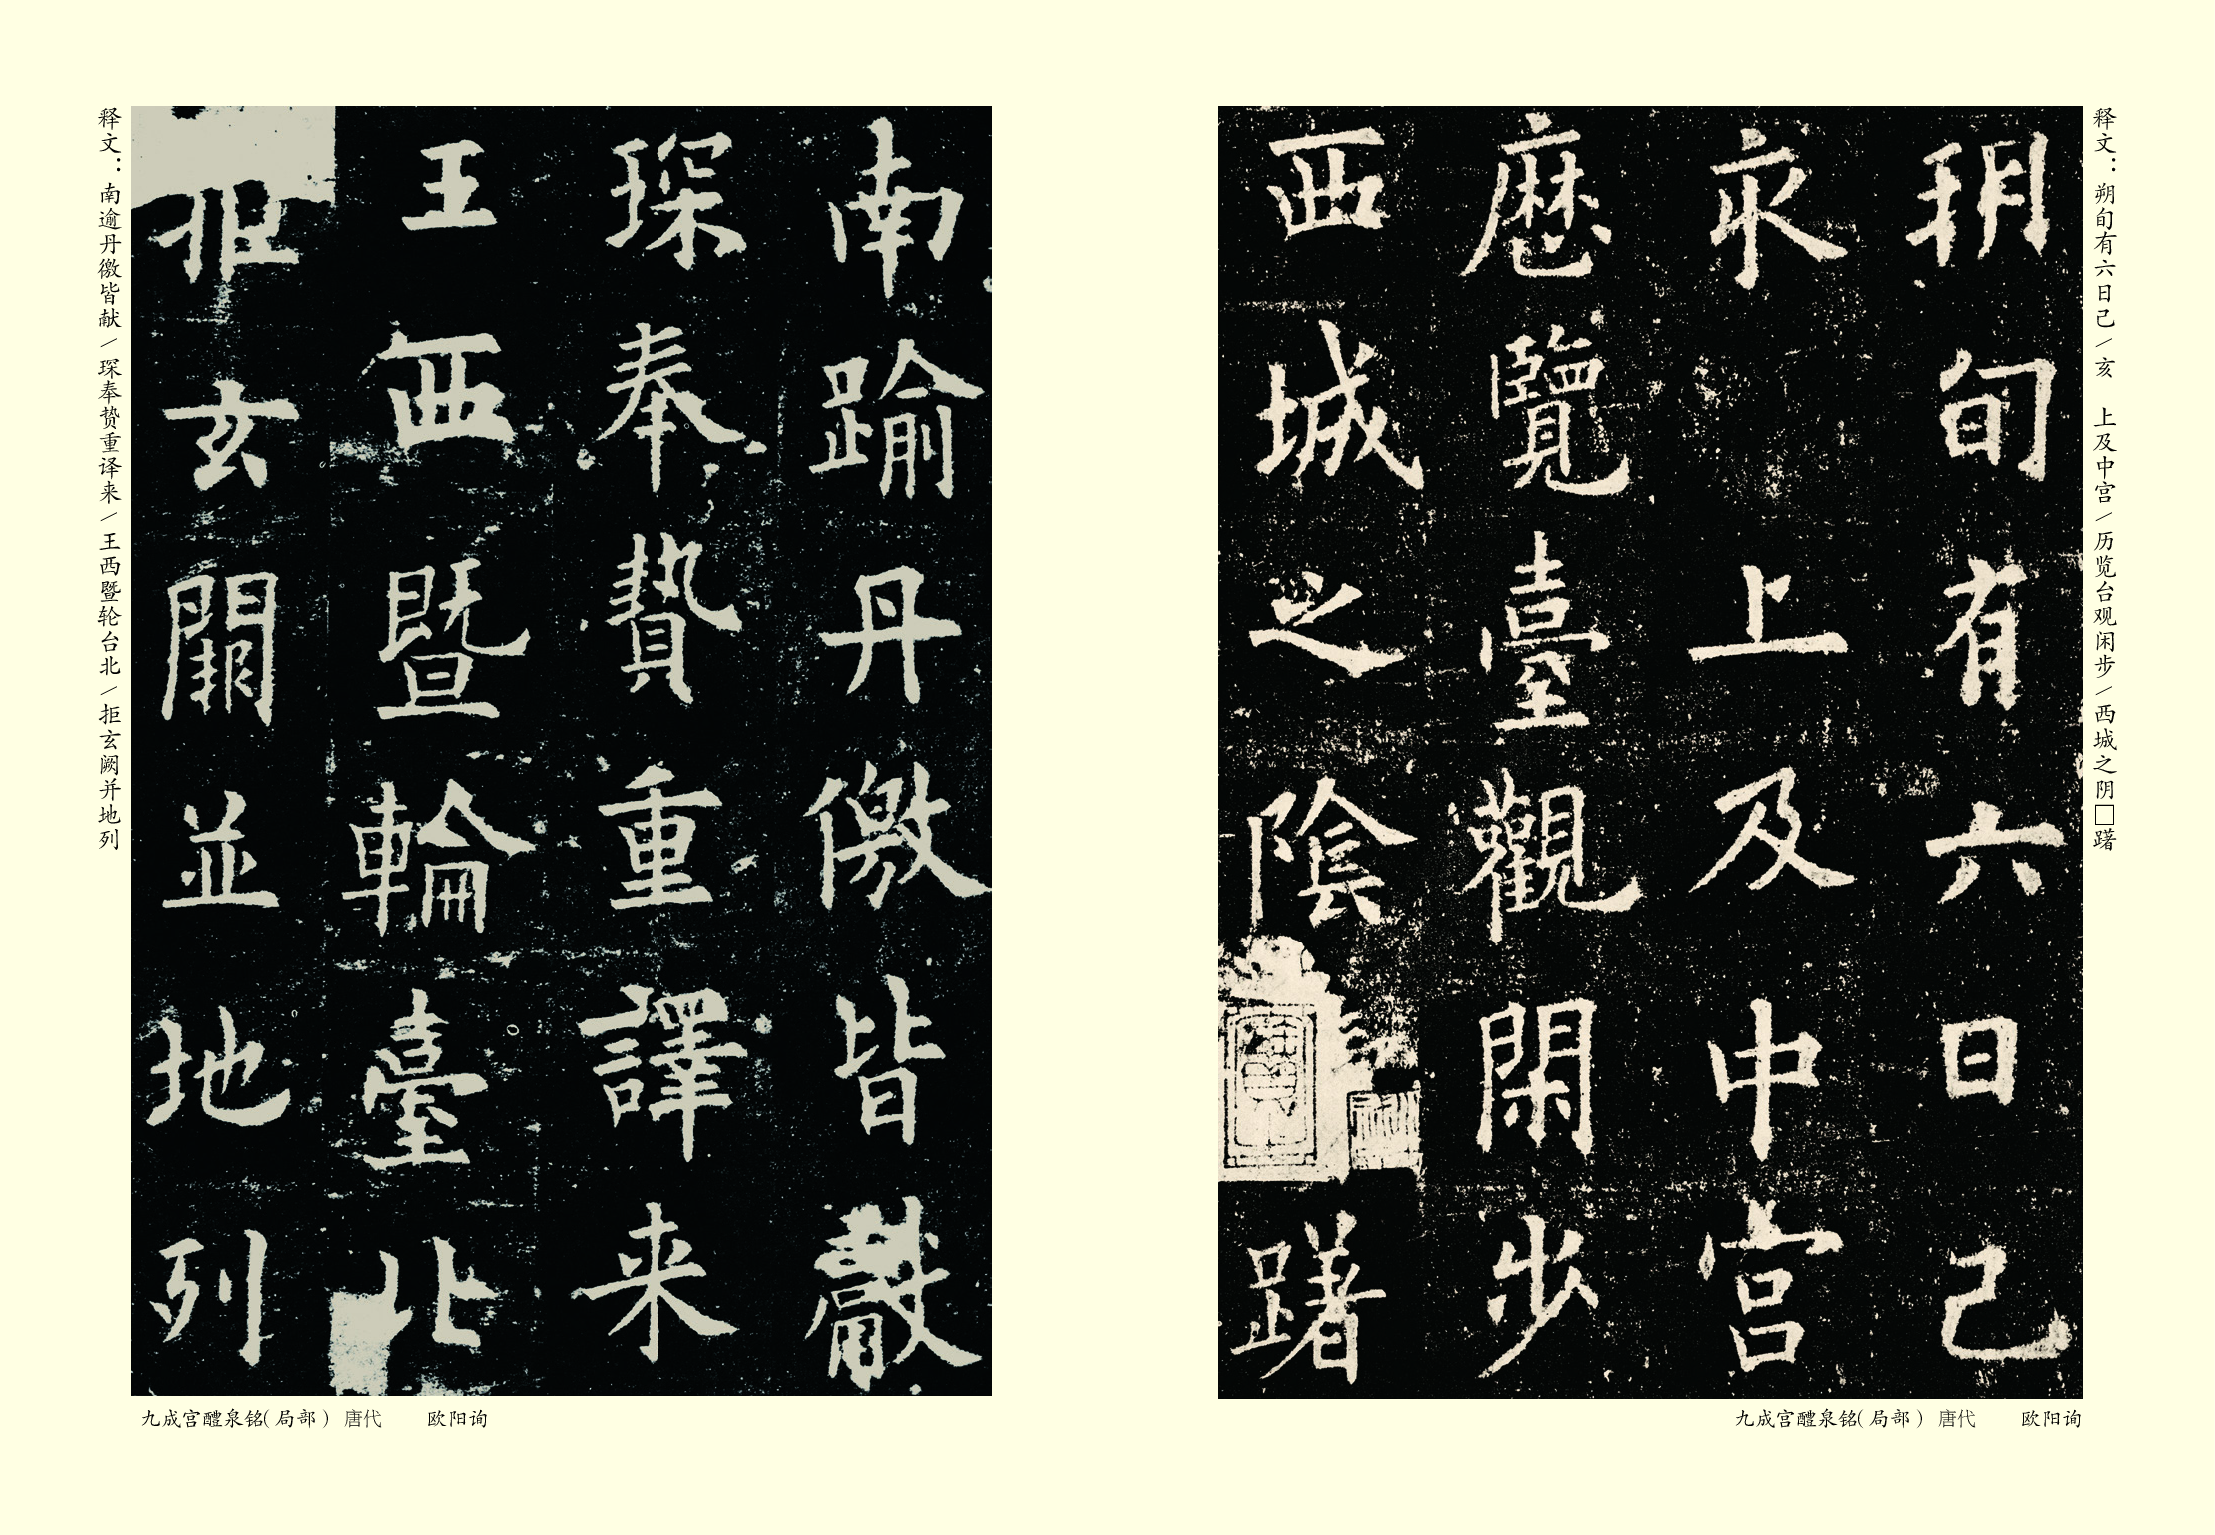 释文：朔旬有六日己/亥　上及中宫/历览台观闲步/西城之阴□躇
朔旬有六日己
亥　上及中宫
歷覽臺觀閑步
西城之陰
躇
九成宫醴泉铭(局部)　唐代　欧阳询
南踰丹徼皆獻
琛奉贄重譯来
王西暨輪臺北
拒玄闕並地列
释文：南逾丹徼皆献/琛奉贽重译来/王西暨轮台北/拒玄阙并地列
九成宫醴泉铭(局部)　唐代　欧阳询